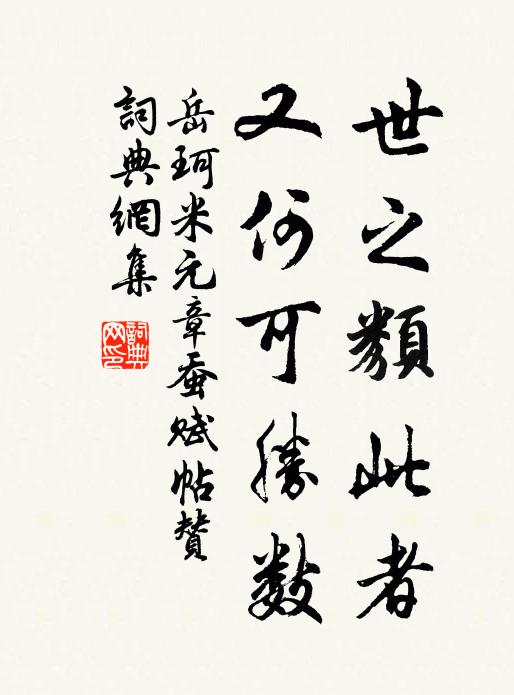 世之類此者
又何可勝数
岳珂米元章蚕賦帖贊
詞典網集
詞典網印